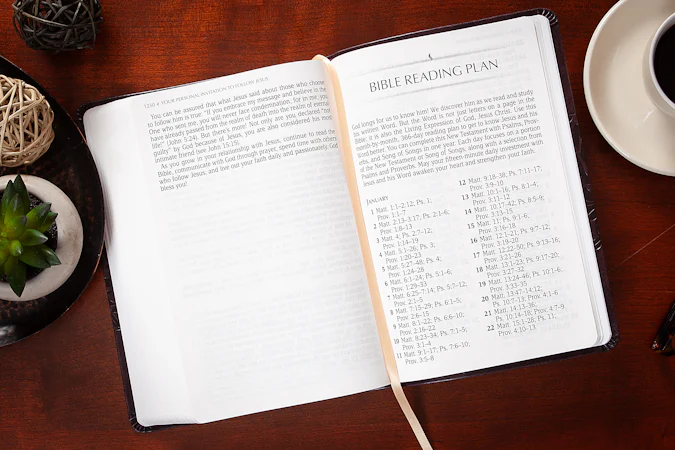 1230 • YOUR PERSONAL INVITATION TO FOLLOW JESUS
You can be assured that what Jesus said about those who choose
to follow him is true: "If you embrace my message and believe in the
One who sent me, you will never face condemnation, for in me, you
have already passed from the realm of death into the realm of eternal
life!" (John 5:24). But there's more! Not only are you declared "not
guilty" by God because of Jesus, you are also considered his most
intimate friend (see John 15:15).
As you grow in your relationship with Jesus, continue to read the
Bible, communicate with God through prayer, spend time with others
who follow Jesus, and live out your faith daily and passionately. God
bless you!
BIBLE READING PLAN
God longs for us to know him! We discover him as we read and study
his written Word. But the Word is not just letters on a page in the
Bible; it is also the Living Expression of God, Jesus Christ. Use this
month-by-month, 365-day reading plan to get to know Jesus and his
Word better. You can complete this New Testament with Psalms, Prov-
erbs, and Song of Songs in one year. Each day focuses on a portion
of the New Testament or Song of Songs, along with a selection from
Psalms and Proverbs. May your fifteen-minute daily investment with
Jesus and his Word awaken your heart and strengthen your faith.
JANUARY
1 Matt. 1:1–2:12; Ps. 1;
Prov. 1:1–7
2 Matt. 2:13–3:17; Ps. 2:1–6;
Prov. 1:8–13
3 Matt. 4; Ps. 2:7–12;
Prov. 1:14–19
4 Matt. 5:1–26; Ps. 3;
Prov. 1:20–23
5 Matt. 5:27–48; Ps. 4;
Prov. 1:24–28
6 Matt. 6:1–24; Ps. 5:1–6;
Prov. 1:29–33
7 Matt. 6:25–7:14; Ps. 5:7–12;
Prov. 2:1–5
8 Matt. 7:15–29; Ps. 6:1–5;
Prov. 2:6–15
9 Matt. 8:1–22; Ps. 6:6–10;
Prov. 2:16–22
10 Matt. 8:23–34; Ps. 7:1–5;
Prov. 3:1–4
11 Matt. 9:1–17; Ps. 7:6–10;
Prov. 3:5–8
12 Matt. 9:18–38; Ps. 7:11–17;
Prov. 3:9–10
13 Matt. 10:1–16; Ps. 8:1–4;
Prov. 3:11–12
14 Matt. 10:17–42; Ps. 8:5–9;
Prov. 3:13–15
15 Matt. 11; Ps. 9:1–6;
Prov. 3:16–18
16 Matt. 12:1–21; Ps. 9:7–12;
Prov. 3:19–20
17 Matt. 12:22–50; Ps. 9:13–16;
Prov. 3:21–26
18 Matt. 13:1–23; Ps. 9:17–20;
Prov. 3:27–32
19 Matt. 13:24–46; Ps. 10:1–6;
Prov. 3:33–35
20 Matt. 13:47–14:12;
Ps. 10:7–13; Prov. 4:1–6
21 Matt. 14:13–36;
Ps. 10:14–18; Prov. 4:7–9
22 Matt. 15:1–28; Ps. 11;
Prov. 4:10–13